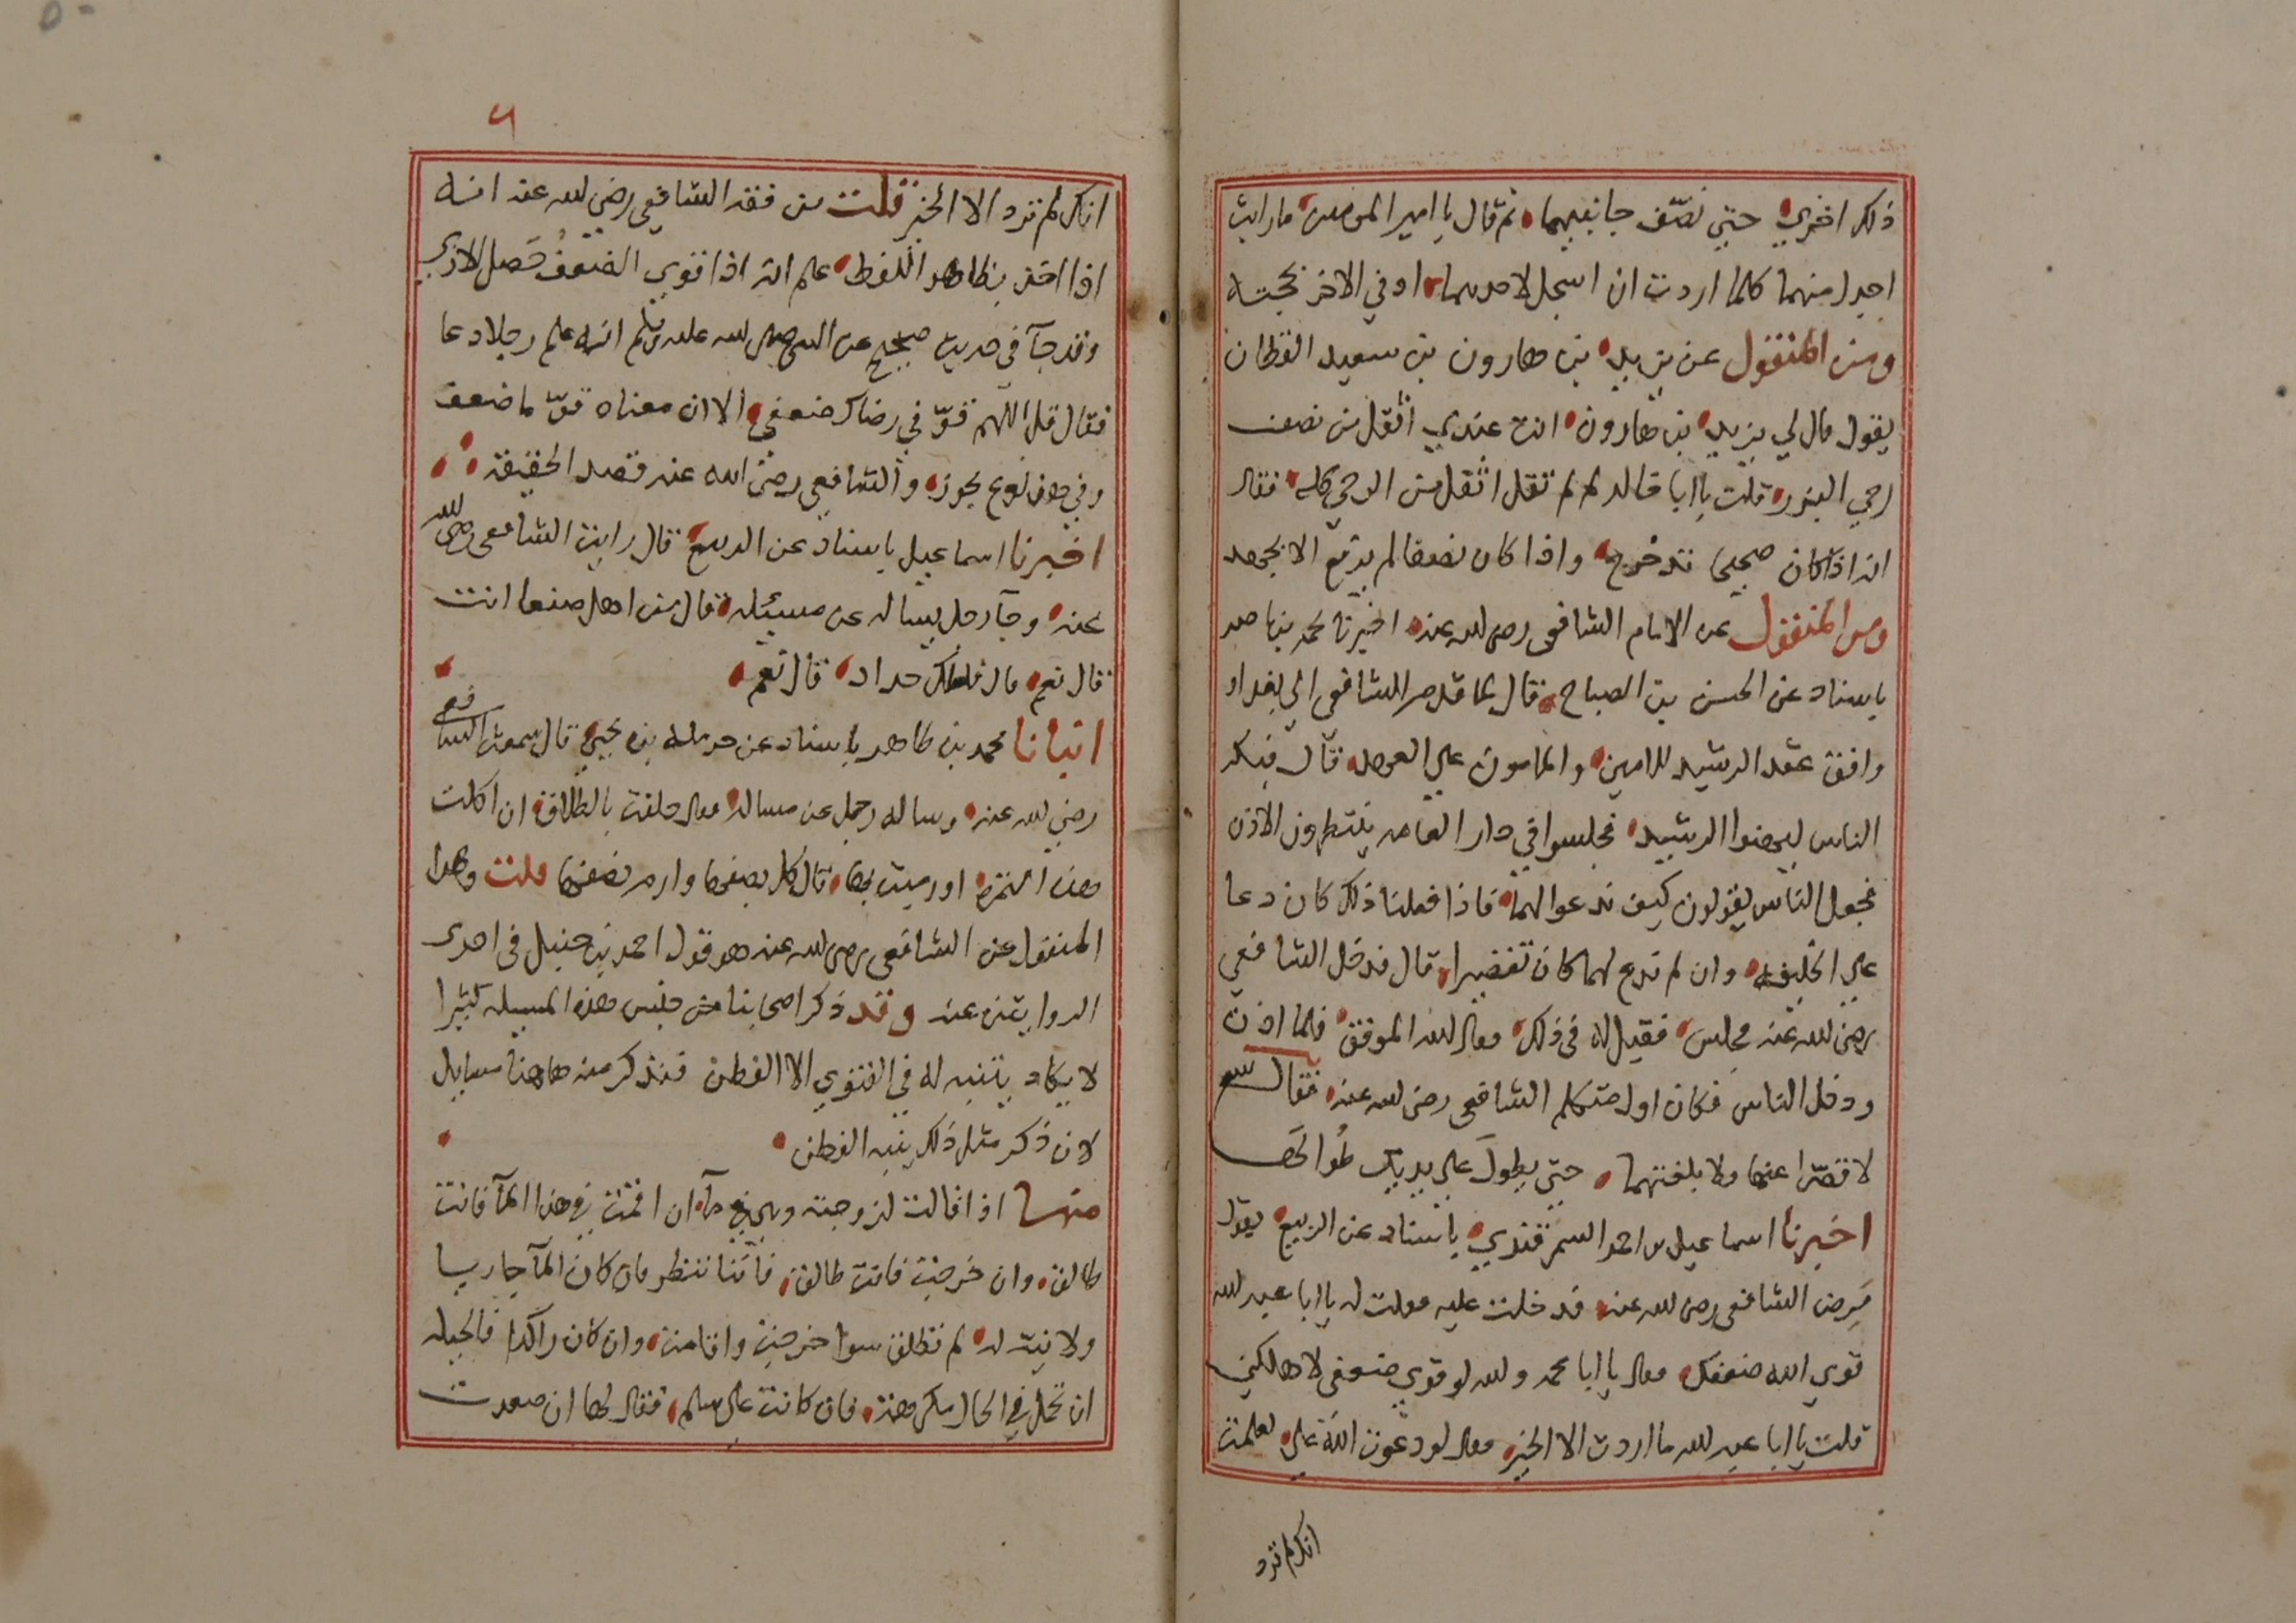 ذلك اخري حتي نصف جانبيهما ثم قال يا امير المومنين ما رايت
اجدل منهما كلما اردت ان اسجل لاحدهما اوفي الاخر بحجته
ومن المنقول عن يزيد بن هارون بن سعيد القطان
يقول قال لي يزيد بن هارون انت عندي اثقل من نصف
رحي البزر قلت يا ابا خالد لم لم تقل اثقل من الرحي كله فقال
انه اذا كان صحيحا تدحرج واذا كان نصفا لم يرتفع الا بجهد
ومن المنقول عن الامام الشافعي رضي لله عنه اخبرنا محمد بن ناصر
باسناد عن الحسن بن الصباح قال لما قدم الشافعي الي بغداد
وافق عقد الرشيد للامين والمامون علي العهد قال فبكر
الناس ليهنوا الرشيد فجلسوا في دار العامه ينتظرون الاذن
فجعل الناس يقولون كيف ندعوا لهما فاذا فعلنا ذلك كان دعا
علي الخليفه وان لم ندع لهما كان تقصيرا قال فدخل الشافعي
رضي لله عنه فجلس فقيل له في ذلك فقال لله الموفق فلما اذن
ودخل الناس فكان اول متكلم الشافعي رضي لله عنه فقال
لا قصرا عنها ولا بلغتهما حتي يطول علي يديك طوالها
اخبرنا اسماعيل بن احمد السمرقندي باسناد عن الربيع يقول
مرض الشافعي رضي لله عنه فدخلت عليه فقلت له يا ابا عبد لله
قوي الله ضعفك فقال يا ابا محمد ولله لو قوي ضعفي لاهلكني
قلت يا ابا عبد لله ما اردت الا الخير فقال لو دعوت الله علي لعلمت
انك لم ترد
٦
انك لم ترد الا الخير قلت من فقه الشافعي رضي لله عنه انه
اذا اخذ بظاهر اللفظ علم انه اذا قوي الضعف حصل الاذي
وقد جآ في حديث صحيح عن النبي صلى لله عليه وسلم انه علم رجلا دعا
فقال قل اللهم قو في رضاك ضعفي الا ان معناه قو ما ضعف
وفي هذا نوع يجوز والشافعي رضي الله عنه قصد الحقيقة
اخبرنا اسماعيل باسناد عن الربيع قال رايت الشافعي رضي لله
عنه وجآ رجل يساله عن مسيئله فقال من اهل صنعا انت
قال نعم قال فلعلك حداد قال نعم
انبانا محمد بن طاهر باسناد عن حرمله بن يحيي قال سمعت الشافعي
رضي لله عنه وساله رجل عن مساله فقال حلفت بالطلاق ان اكلت
هذه التمره او رميت بها قال تاكل نصفها وارم نصفها قلت وهذا
المنقول عن الشافعي رضي لله عنه هو قول احمد بن حنبل في احدى
الروايتين عنه وقد ذكر اصحابنا من جنس هذه المسيله كثيرا
لا يكاد يتنبه له في الفتوي الا الفطن فنذكر منه هاهنا مسايل
لان ذكر مثل ذلك ينبه الفطن
منها اذا قالت لزوجته وهي في مآ ان اقمت في هذا المآ فانت
طالق وان خرجت فانت طالق فاننا ننظر فان كان المآ جاريا
ولا نيت له لم تطلق سوا خرجت واقامت وان كان راكدا فالحيله
ان تحمل في الحال مكرهة فان كانت علي سلم فقال لها ان صعدت